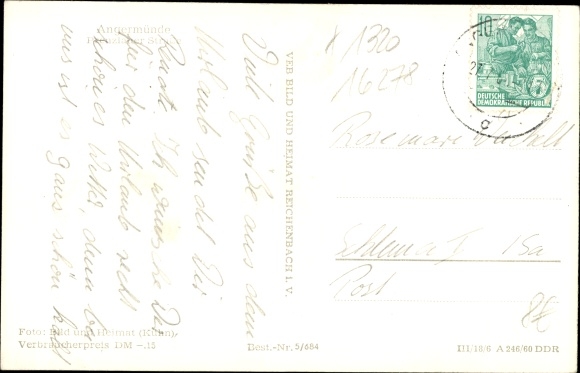 Angermünde
Viele Grüße aus dem
Urlaub sendet Dir
Ruidi. Ich wünsche Dir
für den Urlaub recht
schönes Wetter, denn bei
uns ist es ganz schön kalt
Foto: Bild und Heimat (Kühn),
Verbraucherpreis DM -.15
Best.-Nr. 5/684
VEB BILD UND HEIMAT REICHENBACH I. V.
1320
16278
10
5
DEUTSCHE
DEMOKRATISCHE REPUBLIK
Rosemarie
Schlema I 15a
Post
III/18/6 A 246/60 DDR